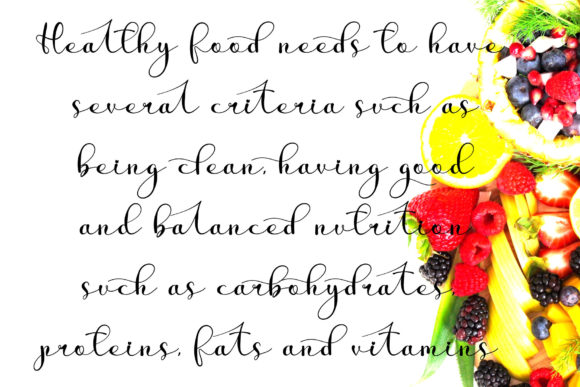 Healthy food needs to have
several criteria such as
being clean, having good
and balanced nutrition
such as carbohydrates,
proteins, fats and vitamins